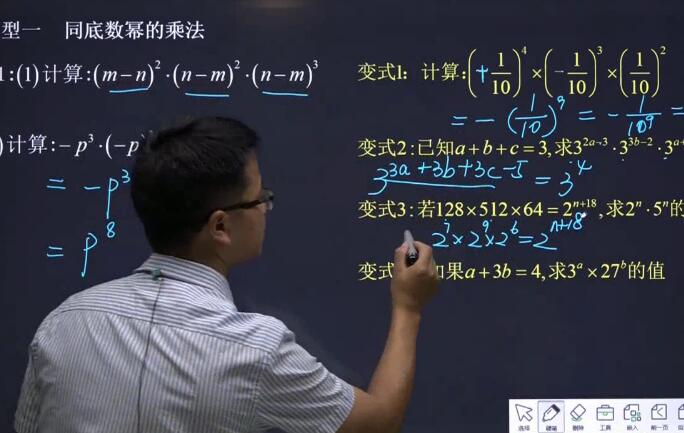 型一 同底数幂的乘法
1:(1)计算:(m−n)²·(n−m)²·(n−m)³
)计算:−p³·(−p)
= −p³
= p⁸
变式1: 计算:(+1/10)⁴×(−1/10)³×(1/10)²
= −(1/10)⁹ = −1/10⁹ =
变式2:已知a+b+c=3,求3²ᵃ⁻³·3³ᵇ⁻²·3ᵃ⁺
3³ᵃ⁺³ᵇ⁺³ᶜ⁻⁵ = 3⁴
变式3:若128×512×64=2ⁿ⁺¹⁸,求2ⁿ·5ⁿ的
2⁷×2⁹×2⁶=2ⁿ⁺¹⁸
变式 如果a+3b=4,求3ᵃ×27ᵇ的值
选择 硬笔 删除 工具 嵌入 前一页